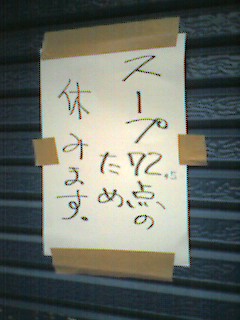 スープ72.5点の
ため
休みます。